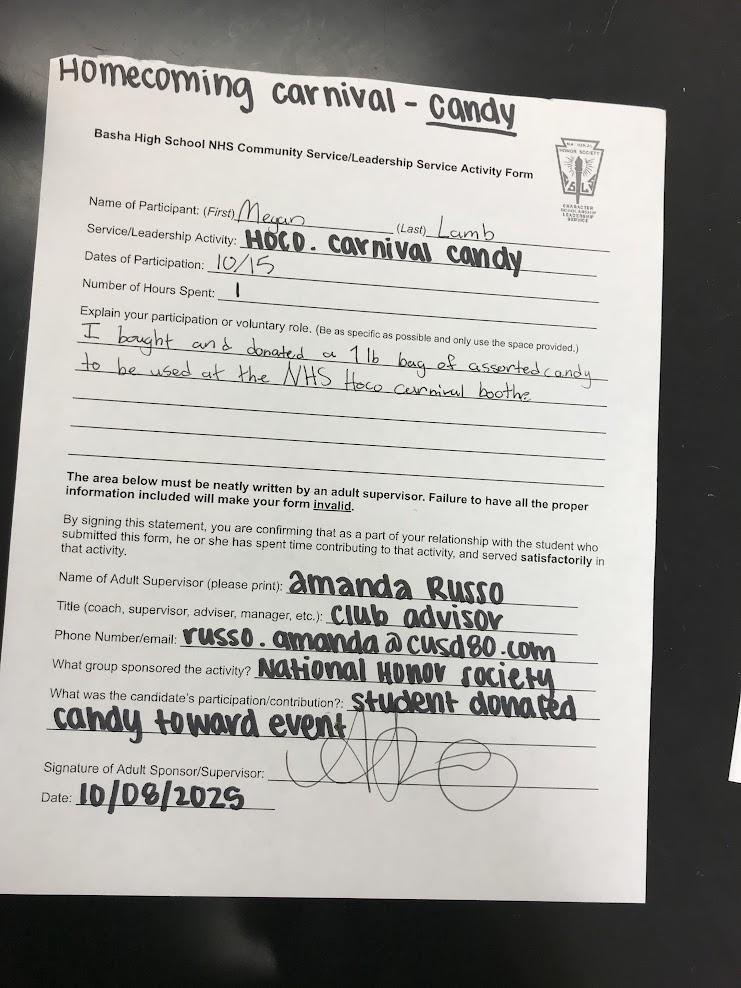 Homecoming carnival - candy
Basha High School NHS Community Service/Leadership Service Activity Form
NATIONAL
HONOR SOCIETY
CHARACTER
SCHOLARSHIP
LEADERSHIP
SERVICE
Name of Participant: (First) Megan (Last) Lamb
Service/Leadership Activity: HOCO. carnival candy
Dates of Participation: 10/15
Number of Hours Spent: 1
Explain your participation or voluntary role. (Be as specific as possible and only use the space provided.)
I bought and donated a 1 lb bag of assorted candy
to be used at the NHS Hoco carnival booth.
The area below must be neatly written by an adult supervisor. Failure to have all the proper
information included will make your form invalid.
By signing this statement, you are confirming that as a part of your relationship with the student who
submitted this form, he or she has spent time contributing to that activity, and served satisfactorily in
that activity.
Name of Adult Supervisor (please print): amanda Russo
Title (coach, supervisor, adviser, manager, etc.): club advisor
Phone Number/email: russo.amanda@cusd80.com
What group sponsored the activity? National Honor society
What was the candidate's participation/contribution?: student donated
candy toward event
Signature of Adult Sponsor/Supervisor:
Date: 10/08/2025